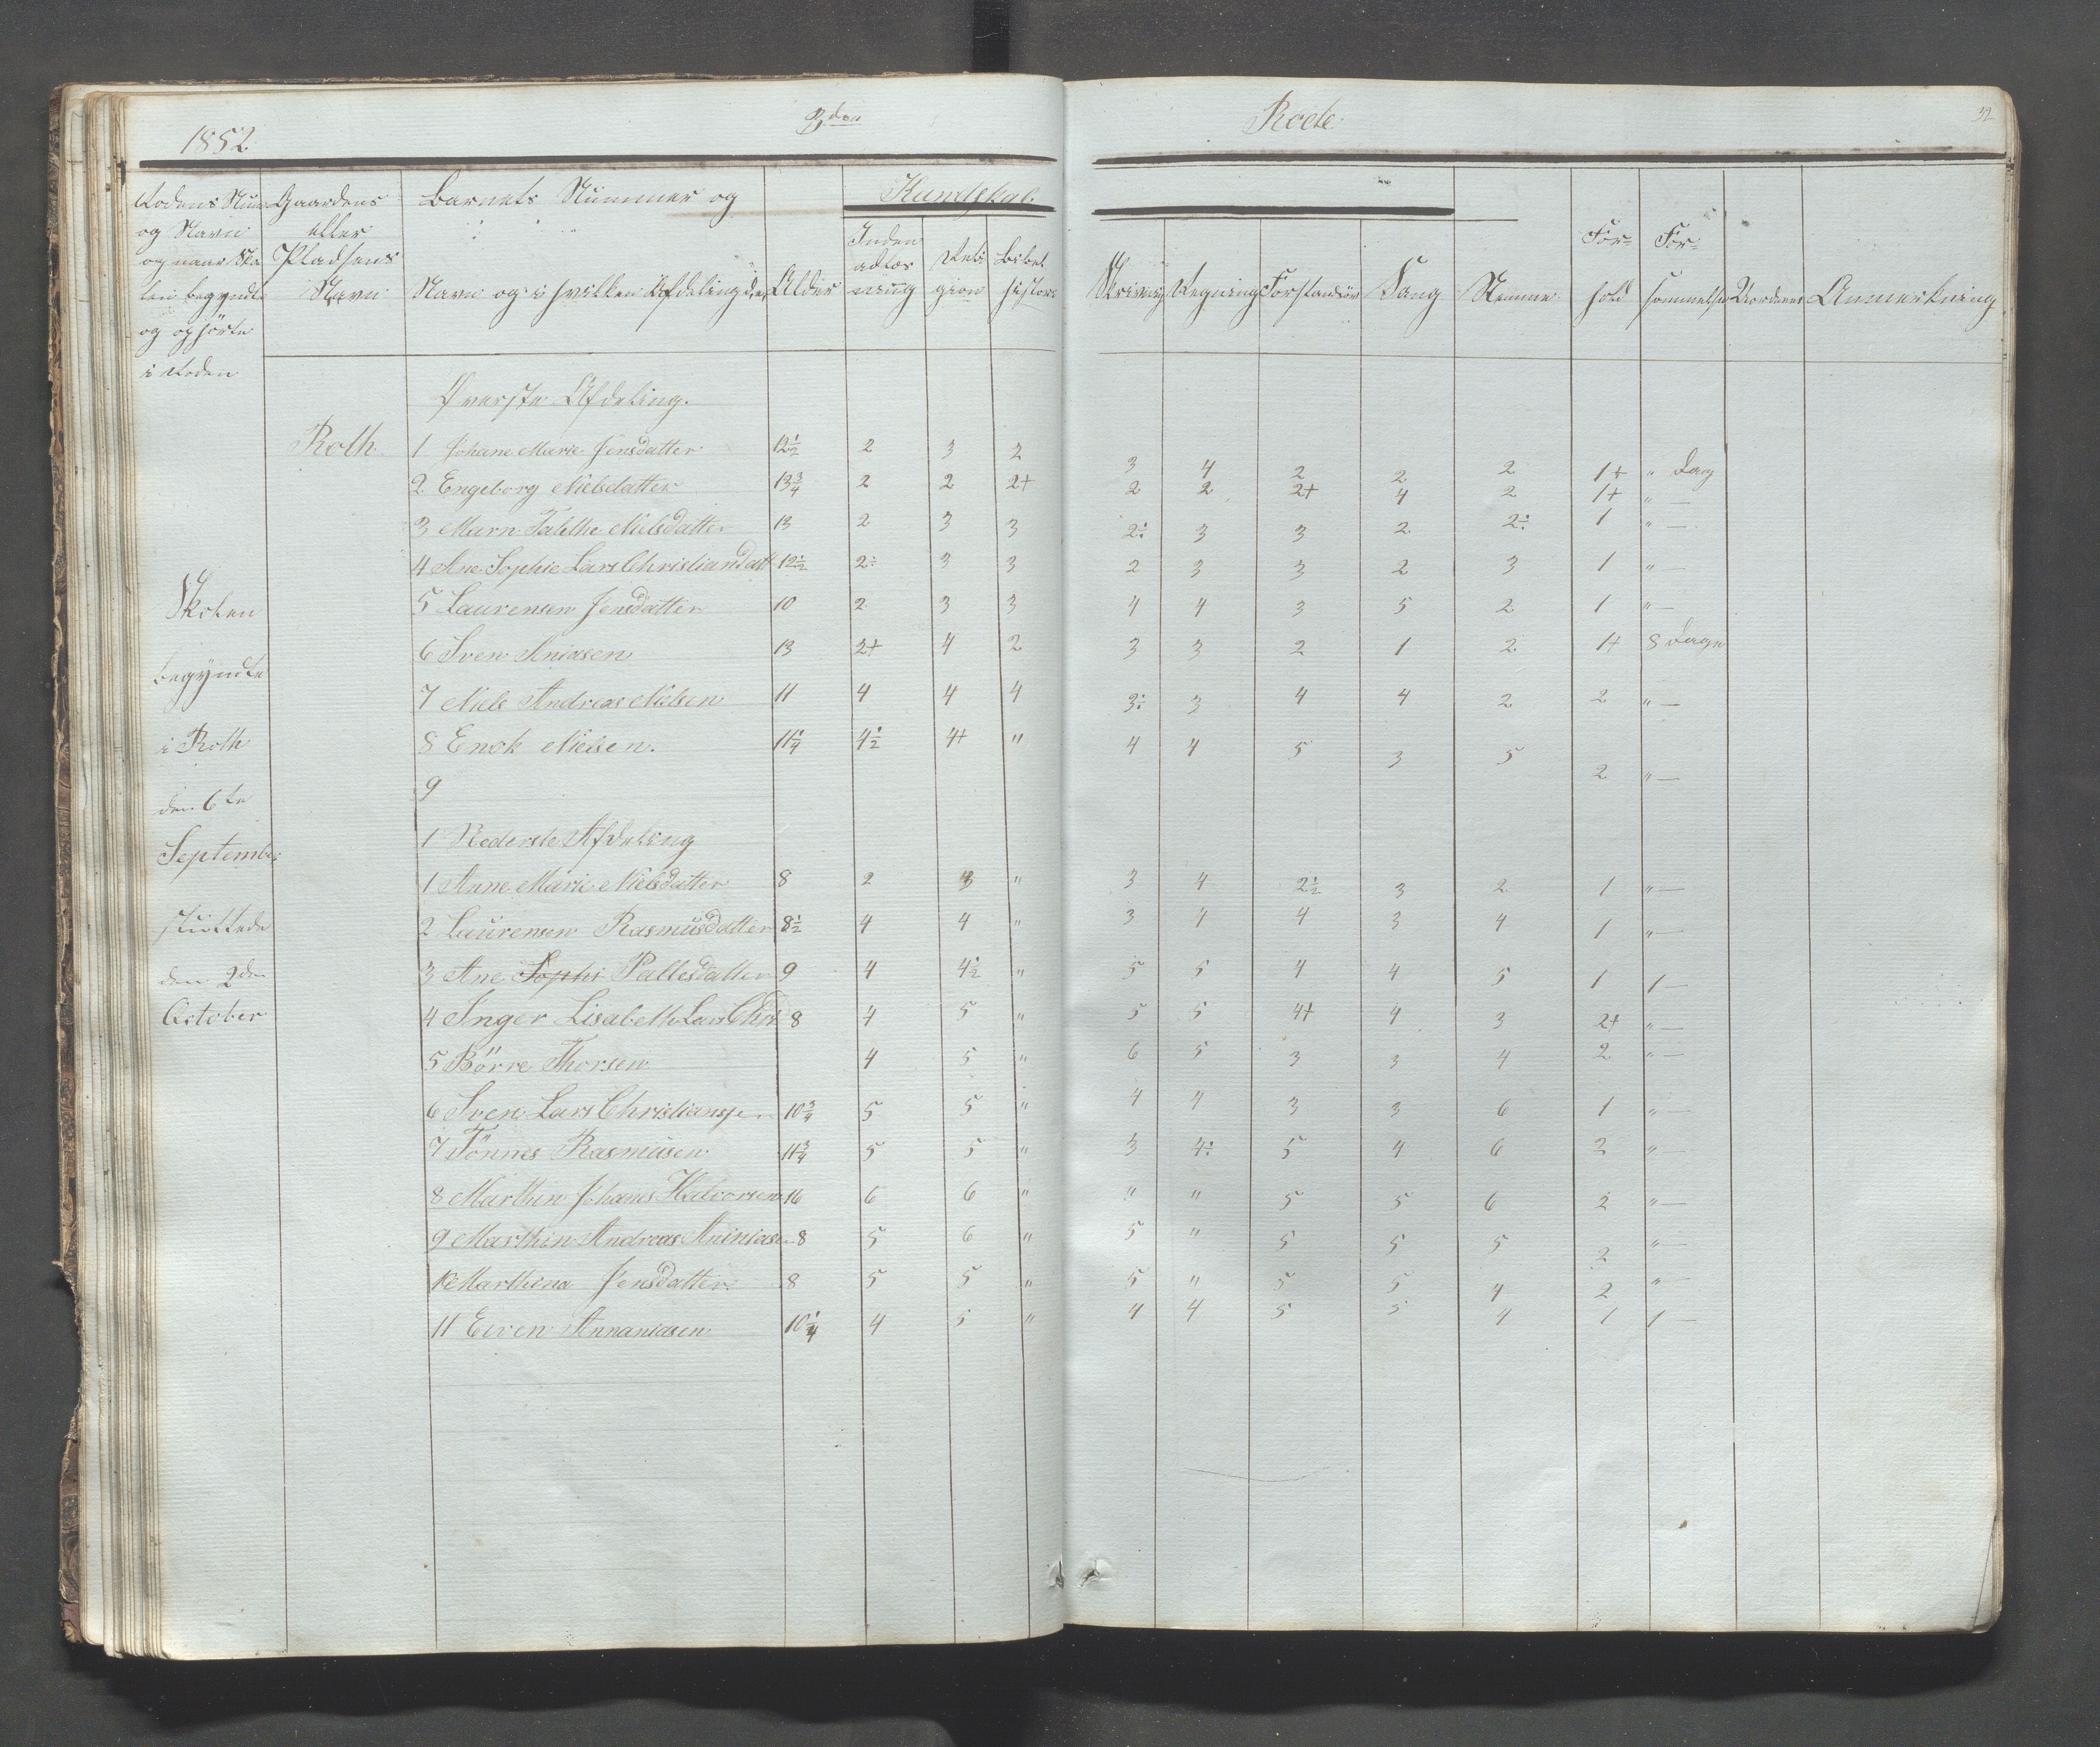 1852 3den Rode 52
Rodens Num Gaardens Barnets Nummer og Kundskab.
og Navn eller Inden For- For-
og naar Sko Pladsens adlæs Reli Bibel
len begyndte Navn Navn og i hvilken Afdeling d,e, Alder ning gion histori Skrivning Regning Forstandsöv Sang Stemme hold sommelse Anmerkning
og ophörte
i Roden
Øverste Afdeling.
Roth 1 Johane Marie Jensdatter 12½ 2 3 2 3 4 2 2 2 1+ " Dag
2 Engeborg Nielsdatter 13¾ 2 2 2+ 2 2 2+ 4 2 1+ " —
3 Maren Talethe Nielsdatter 13 2 3 3 2÷ 3 3 2 2÷ 1 " —
4 Ane Sophie Lars Christiandatt 12½ 2÷ 3 3 2 3 3 2 3 1 " —
Skolen 5 Laurensen Jensdatter 10 2 3 3 4 4 3 5 2 1 " —
6 Sven Aniasen 13 2+ 4 2 3 3 2 1 2 1+ 8 Dage
begyndte
7 Niels Andreas Nielsen 11 4 4 4 3÷ 3 4 4 2 2 " —
i Roth 8 Enok Nielsen. 11¼ 4½ 4+ " 4 4 5 3 5 2 " —
den 6te 9
1 Nederste Afdeling
September
1 Anne Marie Nielsdatter 8 2 3 " 3 4 2½ 3 2 1 " —
sluttede 2 Laurensen Rasmusdatter 8½ 4 4 " 3 4 4 3 4 1 " —
den 2den 3 Ane Sophi Pallesdatter 9 4 4½ " 5 5 4 4 5 1 1 —
October 4 Inger Lisabeth Lars Chr 8 4 5 " 5 5 4+ 4 3 2+ " —
5 Börre Thorsen 4 5 " 6 5 3 3 4 2 " —
6 Sven Lars Christiansen 10¾ 5 5 " 4 4 3 3 6 1 " —
7 Tönnes Rasmusen 11¾ 5 5 " 3 4÷ 5 4 6 2 " —
8 Marthin Johanes Halvorsen 16 6 6 " " " 5 5 6 2 " —
9 Marthin Andreas Aniniasen 8 5 6 " 5 " 5 5 5 2 " —
10 Marthina Jensdatter 8 5 5 " 5 " 5 5 4 2 " —
11 Eiven Annaniasen 10¼ 4 5 " 4 4 5 5 4 1 1 —